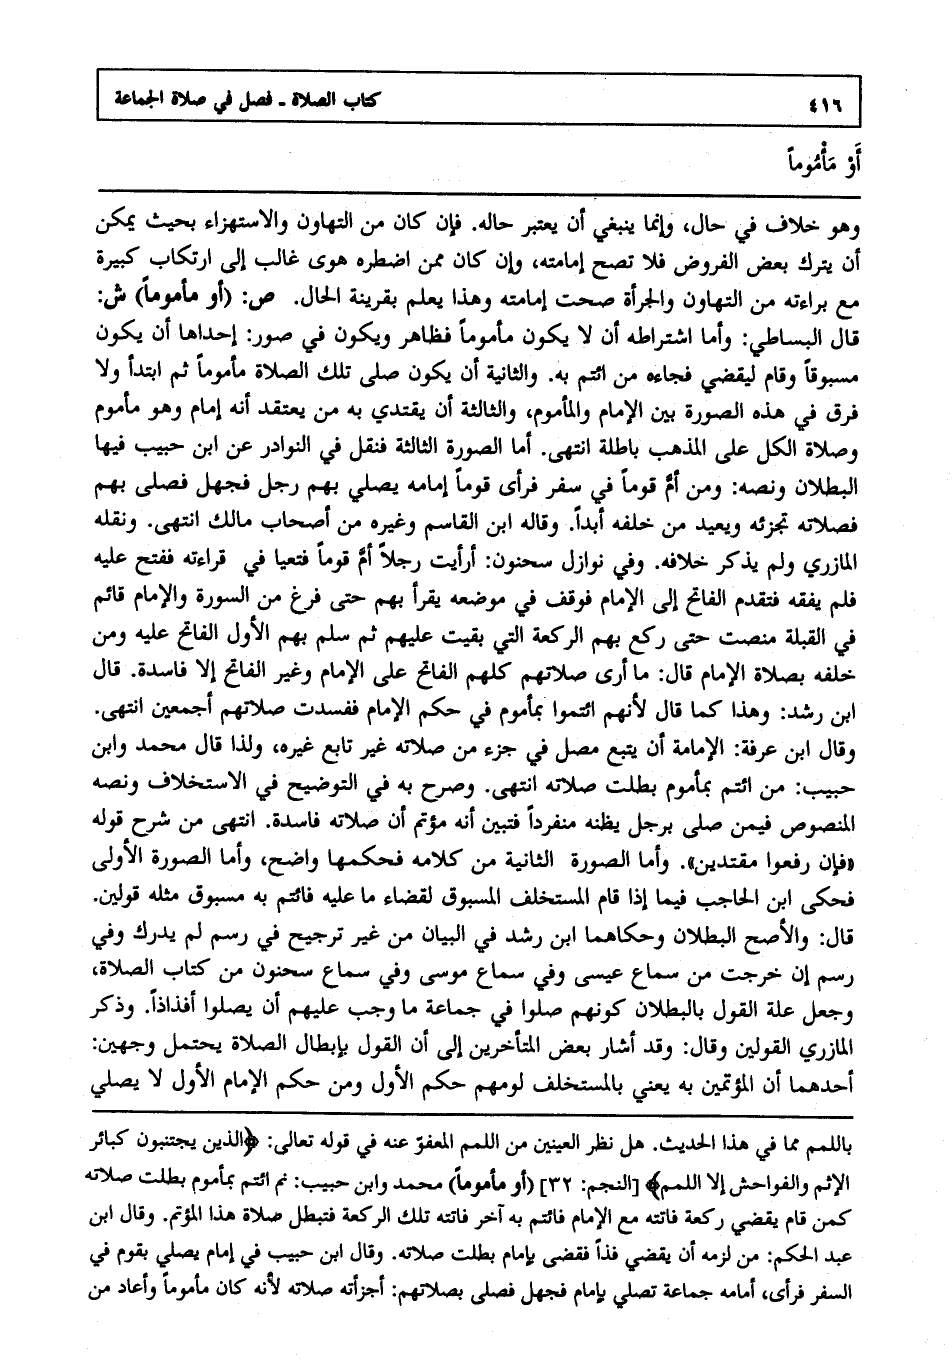 ٤١٦ كتاب الصلاة ـ فصل في صلاة الجماعة
أَوْ مَأْمُوماً
وهو خلاف في حال، وإنما ينبغي أن يعتبر حاله. فإن كان من التهاون والاستهزاء بحيث يمكن
أن يترك بعض الفروض فلا تصح إمامته، وإن كان ممن اضطره هوى غالب إلى ارتكاب كبيرة
مع براءته من التهاون والجرأة صحت إمامته وهذا يعلم بقرينة الحال. ص: (أو مأموماً) ش:
قال البساطي: وأما اشتراطه أن لا يكون مأموماً فظاهر ويكون في صور: إحداها أن يكون
مسبوقاً وقام ليقضي فجاءه من ائتم به. والثانية أن يكون صلى تلك الصلاة مأموماً ثم ابتدأ ولا
فرق في هذه الصورة بين الإمام والمأموم، والثالثة أن يقتدي به من يعتقد أنه إمام وهو مأموم
وصلاة الكل على المذهب باطلة انتهى. أما الصورة الثالثة فنقل في النوادر عن ابن حبيب فيها
البطلان ونصه: ومن أمَّ قوماً في سفر فرأى قوماً إمامه يصلي بهم رجل فجهل فصلى بهم
فصلاته تجزئه ويعيد من خلفه أبداً. وقاله ابن القاسم وغيره من أصحاب مالك انتهى. ونقله
المازري ولم يذكر خلافه. وفي نوازل سحنون: أرأيت رجلاً أمَّ قوماً فتعيا في قراءته ففتح عليه
فلم يفقه فتقدم الفاتح إلى الإمام فوقف في موضعه يقرأ بهم حتى فرغ من السورة والإمام قائم
في القبلة منصت حتى ركع بهم الركعة التي بقيت عليهم ثم سلم بهم الأول الفاتح عليه ومن
خلفه بصلاة الإمام قال: ما أرى صلاتهم كلهم الفاتح على الإمام وغير الفاتح إلا فاسدة. قال
ابن رشد: وهذا كما قال لأنهم ائتموا بمأموم في حكم الإمام ففسدت صلاتهم أجمعين انتهى.
وقال ابن عرفة: الإمامة أن يتبع مصل في جزء من صلاته غير تابع غيره، ولذا قال محمد وابن
حبيب: من ائتم بمأموم بطلت صلاته انتهى. وصرح به في التوضيح في الاستخلاف ونصه
المنصوص فيمن صلى برجل يظنه منفرداً فتبين أنه مؤتم أن صلاته فاسدة. انتهى من شرح قوله
«فإن رفعوا مقتدين». وأما الصورة الثانية من كلامه فحكمها واضح، وأما الصورة الأولى
فحكى ابن الحاجب فيما إذا قام المستخلف المسبوق لقضاء ما عليه فائتم به مسبوق مثله قولين.
قال: والأصح البطلان وحكاهما ابن رشد في البيان من غير ترجيح في رسم لم يدرك وفي
رسم إن خرجت من سماع عيسى وفي سماع موسى وفي سماع سحنون من كتاب الصلاة،
وجعل علة القول بالبطلان كونهم صلوا في جماعة ما وجب عليهم أن يصلوا أفذاذاً. وذكر
المازري القولين وقال: وقد أشار بعض المتأخرين إلى أن القول بإبطال الصلاة يحتمل وجهين:
أحدهما أن المؤتمين به يعني بالمستخلف لومهم حكم الأول ومن حكم الإمام الأول لا يصلي
باللمم مما في هذا الحديث. هل نظر العينين من اللمم المعفوّ عنه في قوله تعالى: ﴿الذين يجتنبون كبائر
الإثم والفواحش إلا اللمم﴾ [النجم: ٣٢] (أو مأموماً) محمد وابن حبيب: نم ائتم بمأموم بطلت صلاته
كمن قام يقضي ركعة فاتته مع الإمام فائتم به آخر فاتته تلك الركعة فتبطل صلاة هذا المؤتم. وقال ابن
عبد الحكم: من لزمه أن يقضي فذاً فقضى بإمام بطلت صلاته. وقال ابن حبيب في إمام يصلي بقوم في
السفر فرأى، أمامه جماعة تصلي بإمام فجهل فصلى بصلاتهم: أجزأته صلاته لأنه كان مأموماً وأعاد من